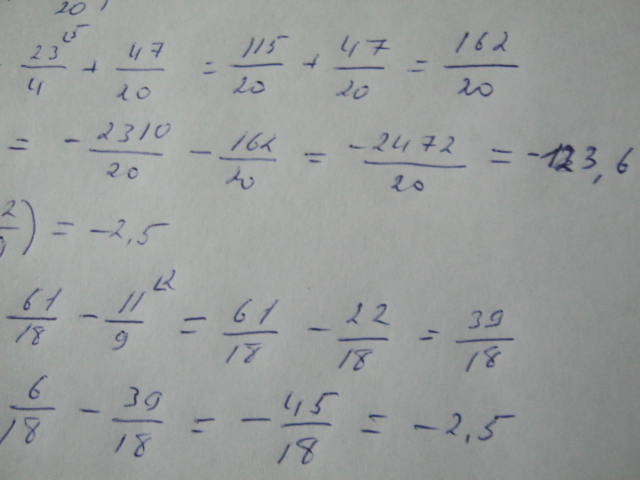 20
23/4 ⁵ + 47/20 = 115/20 + 47/20 = 162/20
= - 2310/20 - 162/20 = -2472/20 = -123,6
2/9) = -2,5
61/18 - 11/9 ² = 61/18 - 22/18 = 39/18
6/18 - 39/18 = - 45/18 = -2,5